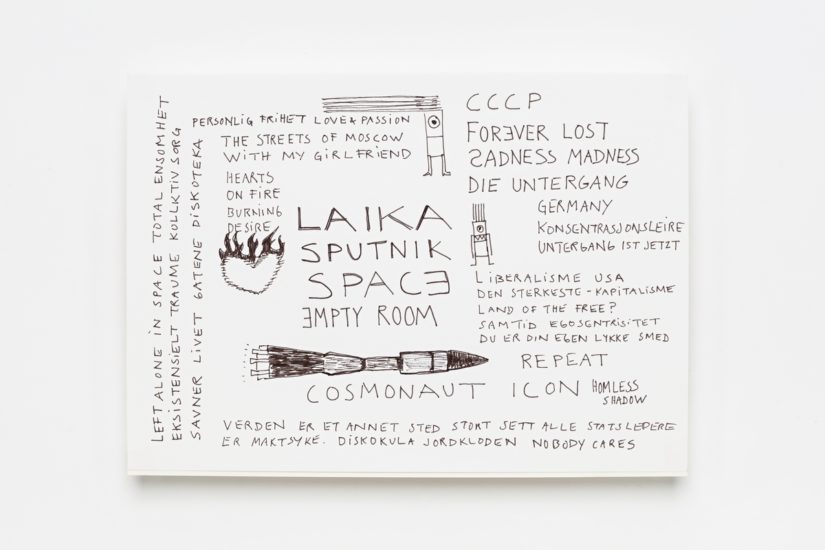 LEFT ALONE IN SPACE TOTAL ENSOMHET
EKSISTENSIELT TRAUME KOLLKTIV SORG
SAVNER LIVET GATENE DISKOTEKA
PERSONLIG FRIHET LOVE & PASSION
THE STREETS OF MOSCOW
WITH MY GIRLFRIEND
HEARTS
ON FIRE
BURNING
DESIRE
LAIKA
SPUTNIK
SPACE
EMPTY ROOM
CCCP
FOREVER LOST
SADNESS MADNESS
DIE UNTERGANG
GERMANY
KONSENTRASJONSLEIRE
UNTERGANG IST JETZT
LIBERALISME USA
DEN STERKESTE - KAPITALISME
LAND OF THE FREE?
SAMTID EGOSENTRISITET
DU ER DIN EGEN LYKKE SMED
REPEAT
COSMONAUT ICON HOMLESS
SHADOW
VERDEN ER ET ANNET STED STORT SETT ALLE STATSLEDERE
ER MAKTSYKE. DISKOKULA JORDKLODEN NOBODY CARES